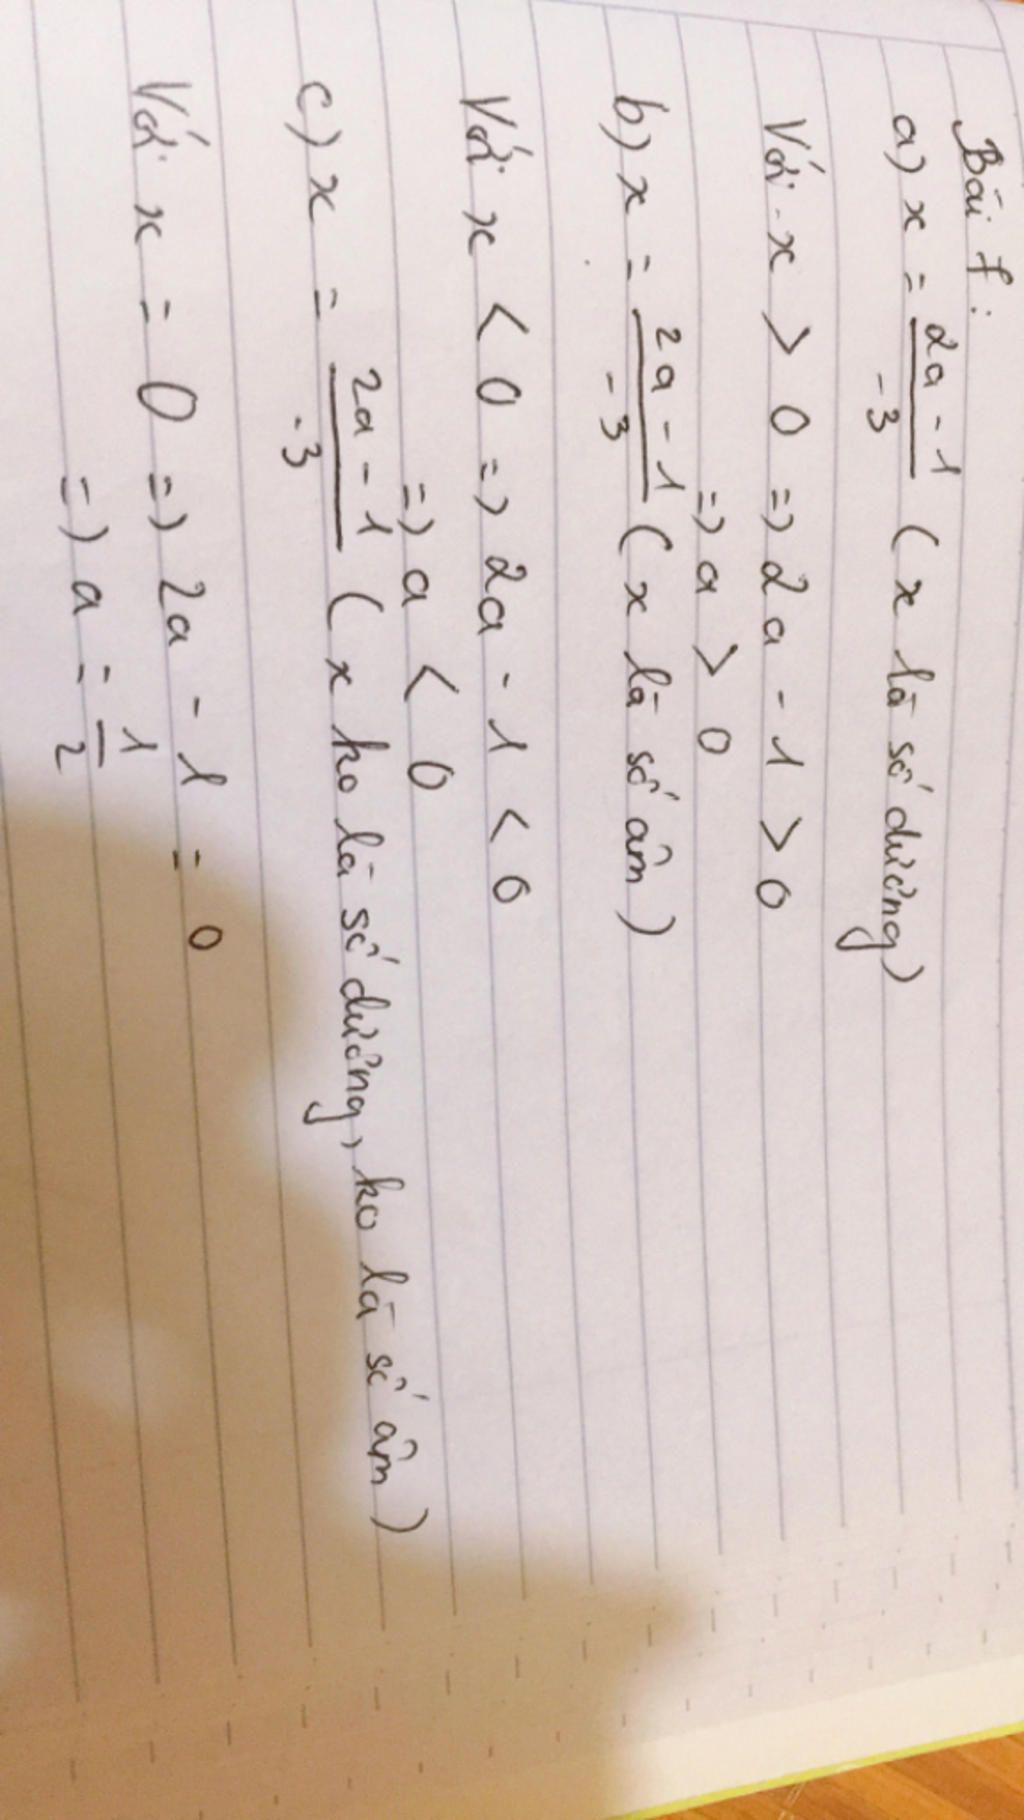 Bài 7:
a) x = 2a - 1 / -3 (x là số dương)
Với x > 0 => 2a - 1 > 0
=> a > 0
b) x = 2a - 1 / -3 (x là số âm)
Với x < 0 => 2a - 1 < 0
=> a < 0
c) x = 2a - 1 / -3 (x ko là số dương, ko là số âm)
Với x = 0 => 2a - 1 = 0
=> a = 1 / 2